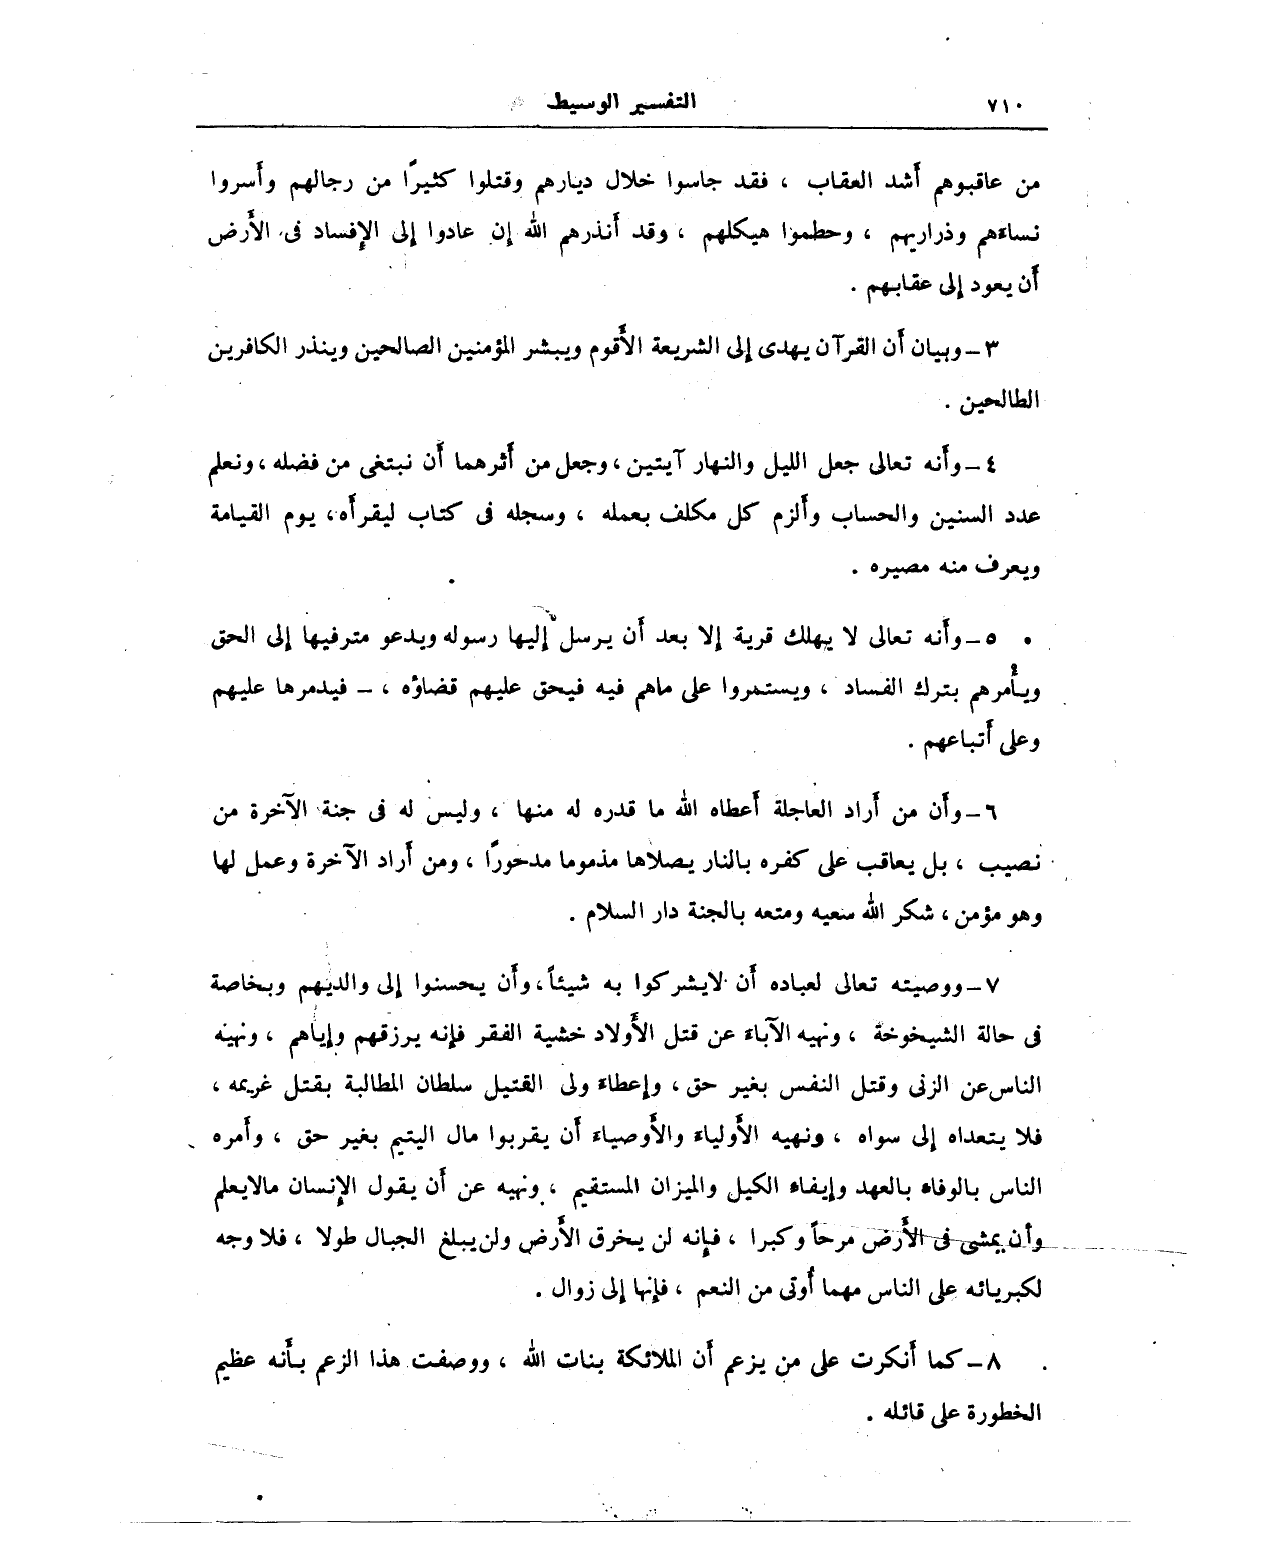 ٧١٠
التفسير الوسيط
من عاقبوهم أشد العقاب ، فقد جاسوا خلال ديارهم وقتلوا كثيرًا من رجالهم وأسروا
نساءهم وذراريهم ، وحطموا هيكلهم ، وقد أنذرهم الله إن عادوا إلى الإفساد فى الأرض
أن يعود إلى عقابهم .
٣ – وبيان أن القرآن يهدى إلى الشريعة الأقوم ويبشر المؤمنين الصالحين وينذر الكافرين
الطالحين .
٤ – وأنه تعالى جعل الليل والنهار آيتين ، وجعل من أثرهما أن نبتغى من فضله ، ونعلم
عدد السنين والحساب وألزم كل مكلف بعمله ، وسجله فى كتاب ليقرأه، يوم القيامة
ويعرف منه مصيره .
٥ – وأنه تعالى لا يهلك قرية إلا بعد أن يرسل إليها رسوله ويدعو مترفيها إلى الحق
ويأمرهم بترك الفساد ، ويستمروا على ماهم فيه فيحق عليهم قضاؤه ، – فيدمرها عليهم
وعلى أتباعهم .
٦ – وأن من أراد العاجلة أعطاه الله ما قدره له منها ، وليس له فى جنة الآخرة من
نصيب ، بل يعاقب على كفره بالنار يصلاها مذموما مدحورًا ، ومن أراد الآخرة وعمل لها
وهو مؤمن ، شكر الله سعيه ومتعه بالجنة دار السلام .
٧ – ووصيته تعالى لعباده أن لايشركوا به شيئاً ، وأن يحسنوا إلى والديهم وبخاصة
فى حالة الشيخوخة ، ونهيه الآباء عن قتل الأولاد خشية الفقر فإنه يرزقهم وإياهم ، ونهيه
الناس عن الزنى وقتل النفس بغير حق ، وإعطاء ولى القتيل سلطان المطالبة بقتل غريمه ،
فلا يتعداه إلى سواه ، ونهيه الأولياء والأوصياء أن يقربوا مال اليتيم بغير حق ، وأمره
الناس بالوفاء بالعهد وإيفاء الكيل والميزان المستقيم ، ونهيه عن أن يقول الإنسان مالايعلم
وأن يمشى فى الأرض مرحاً وكبرا ، فإنه لن يخرق الأرض ولن يبلغ الجبال طولا ، فلا وجه
لكبريائه على الناس مهما أوتى من النعم ، فإنها إلى زوال .
٨ – كما أنكرت على من يزعم أن الملائكة بنات الله ، ووصفت هذا الزعم بأنه عظيم
الخطورة على قائله .